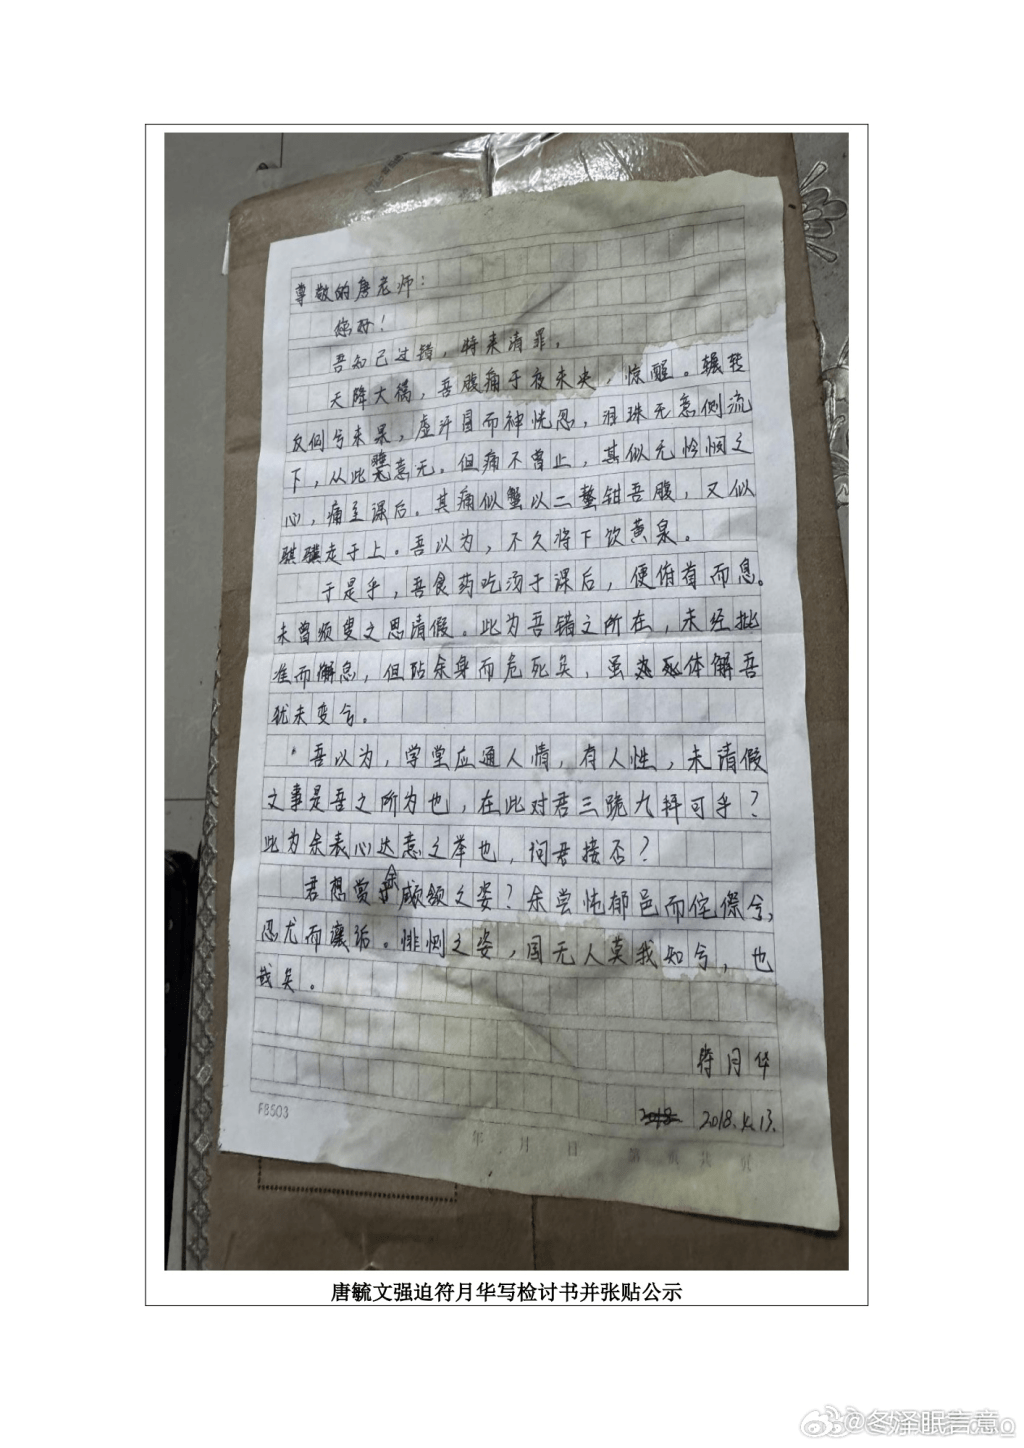 尊敬的唐老师：
您好！
吾知己过错，特来请罪。
天降大祸，吾腹痛于夜未央，惊醒。辗转
反侧兮未果，虚开目而神恍忽，泪珠无意侧流
下，从此意无。但痛不曾止，其似无怜悯之
心，痛至课后。其痛似蟹以二螯钳吾腹，又似
骐骥走于上。吾以为，不久将下饮黄泉。
于是乎，吾食药吃汤于课后，便俯首而息。
未曾须臾之思请假。此为吾错之所在，未经批
准而懈息，但阽余身而危死矣，虽体解吾
犹未变兮。
吾以为，学堂应通人情，有人性，未请假
之事是吾之所为也，在此对君三跪九拜可乎？
此为余表心达意之举也，问君接否？
君想赏余顑颔之姿？余尝忳郁邑而侘傺兮，
忍尤而攘诟。悱恻之姿，国无人莫我知兮，也
哉矣。
符月华
2018.4.13.
F8503
年 月 日 第 页 共 页
唐毓文强迫符月华写检讨书并张贴公示
@冬泽眠言意